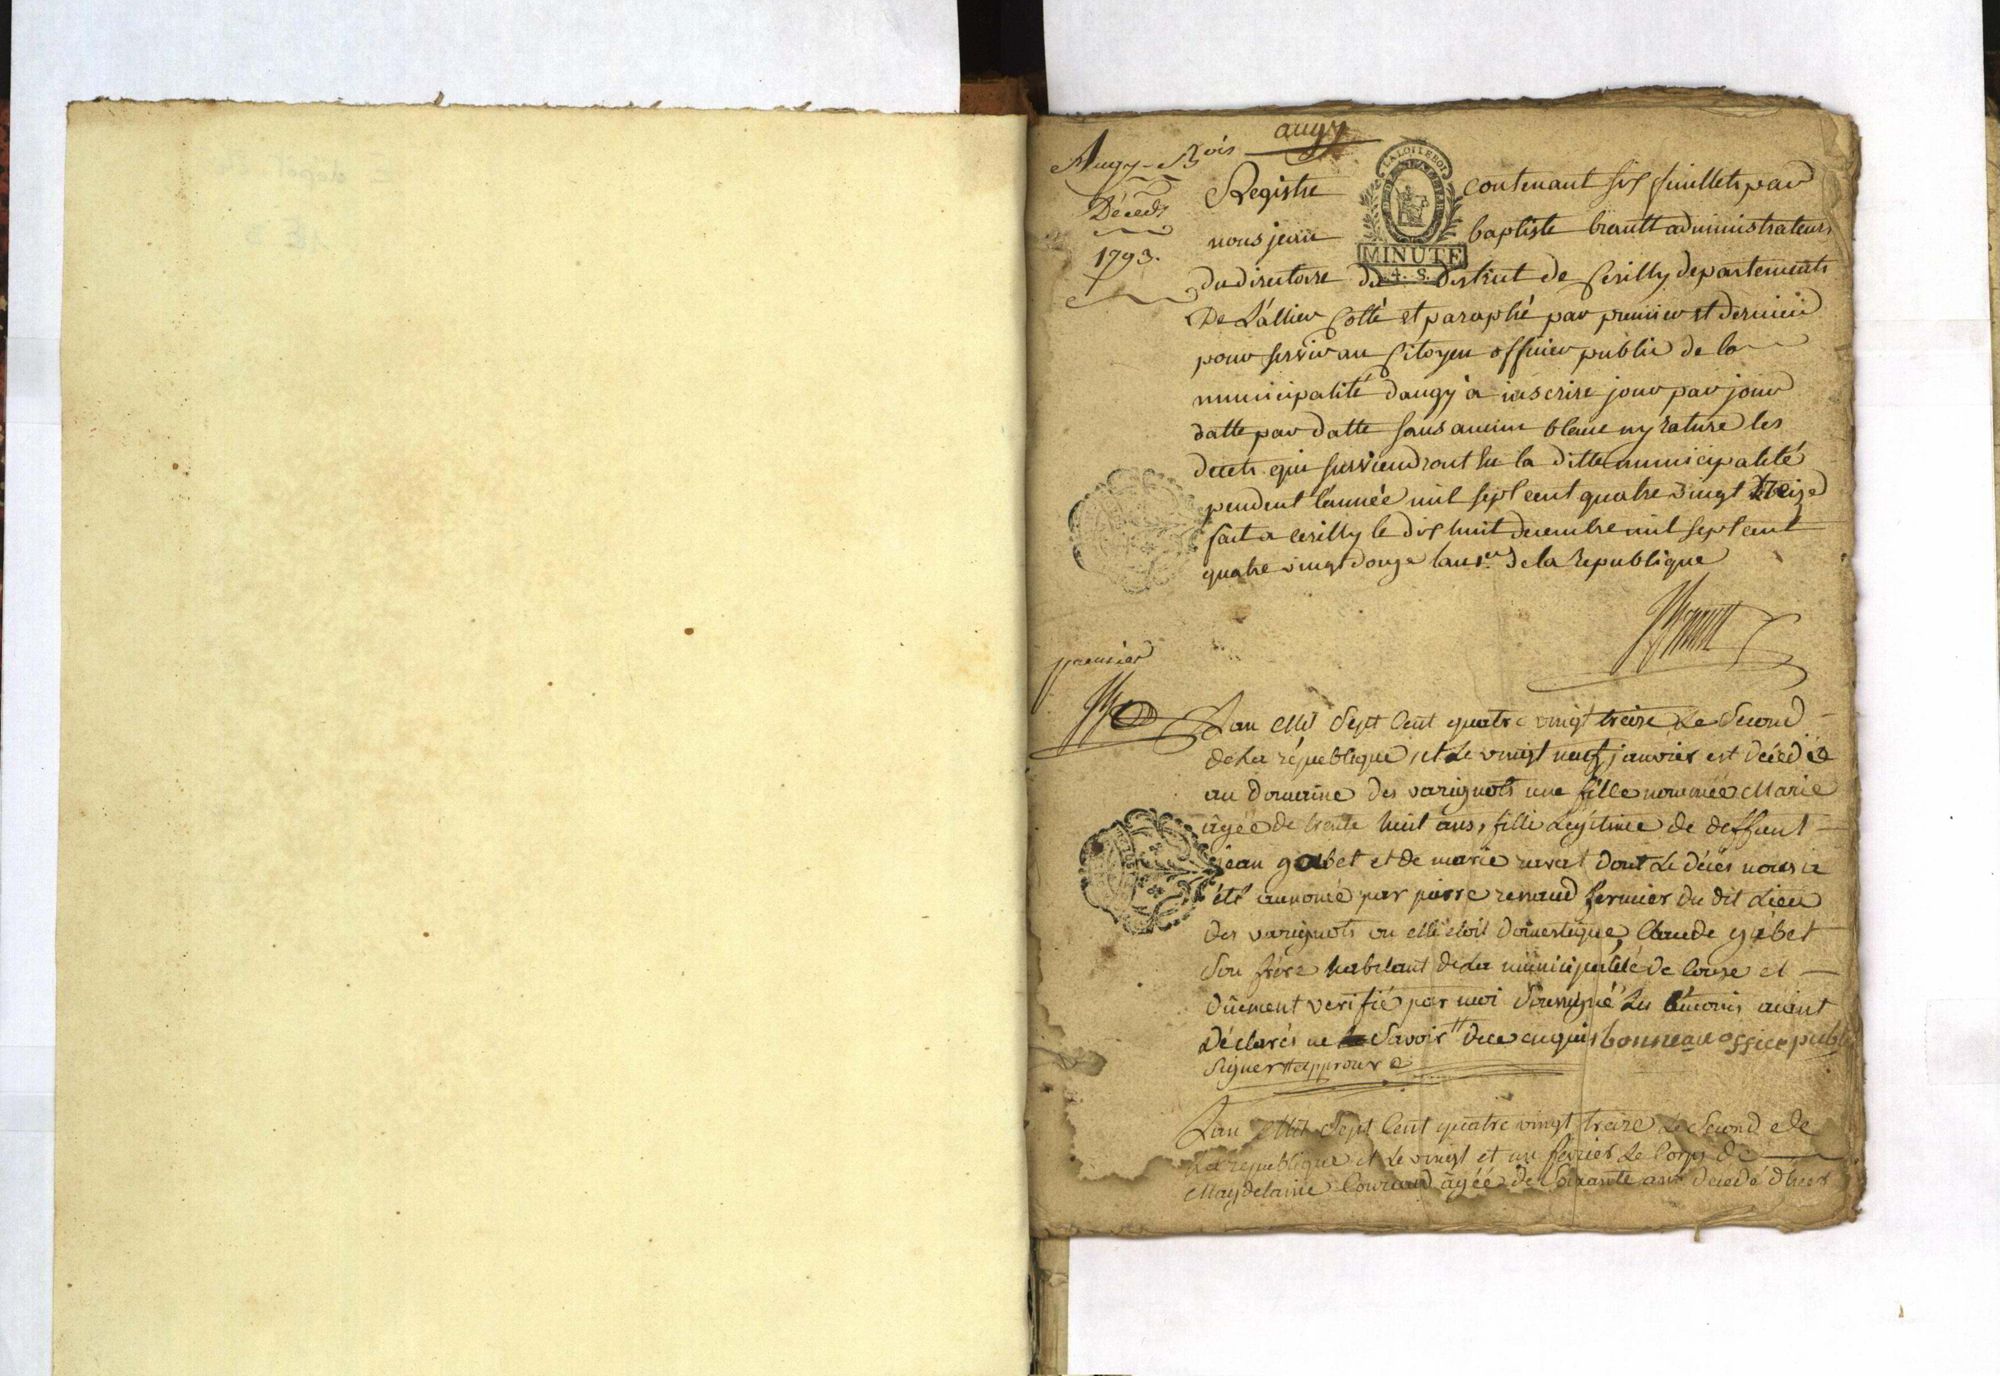 augy
Augy-s-Bois
Décéds
1793.
LA LOI LE ROI
MINUTE
4. S.
Registre contenant six feuillets par
nous jean baptiste brault administrateur
du directoire du district de Cerilly departement
De L'allier Cotté et paraphé par premier et dernier
pour servir au Citoyen officier public de la
municipalité daugy a inscrire jour par jour
datte par datte sans aucun blanc ny rature les
deceds qui surviendront en la ditte municipalité
pendent l'année mil sept cent quatre vingt treize
fait a cerilly le dix huit decembre mil sept cent
quatre vingt douze lan 1er de la republique
premier
Lan Mil Sept Cent quatre vingt treize Le Second
de La république et Le vingt neuf janvier est décédée
au domaine des varignots une fille nommée Marie
âgée de trente huit ans, fille Légitime de deffunt
jean gabet et de marie ravat dont Le décès nous a
été annoncé par pierre renaud fermier du dit Lieu
des varignots ou elle étoit domestique, Claude gabet
Son frère habitant de La municipalité de Couse et
dûement verifié par moi Soussigné Les témoins aiant
Déclarés ne Savoir # de ce enquis bonneau officier public
Signer # approuvé
Lan Mil Sept Cent quatre vingt treize Le Second de
La republique et Le vingt et un février Le Corps de
Magdelaine Couraud âgée de Soixante ans décédé d'hier